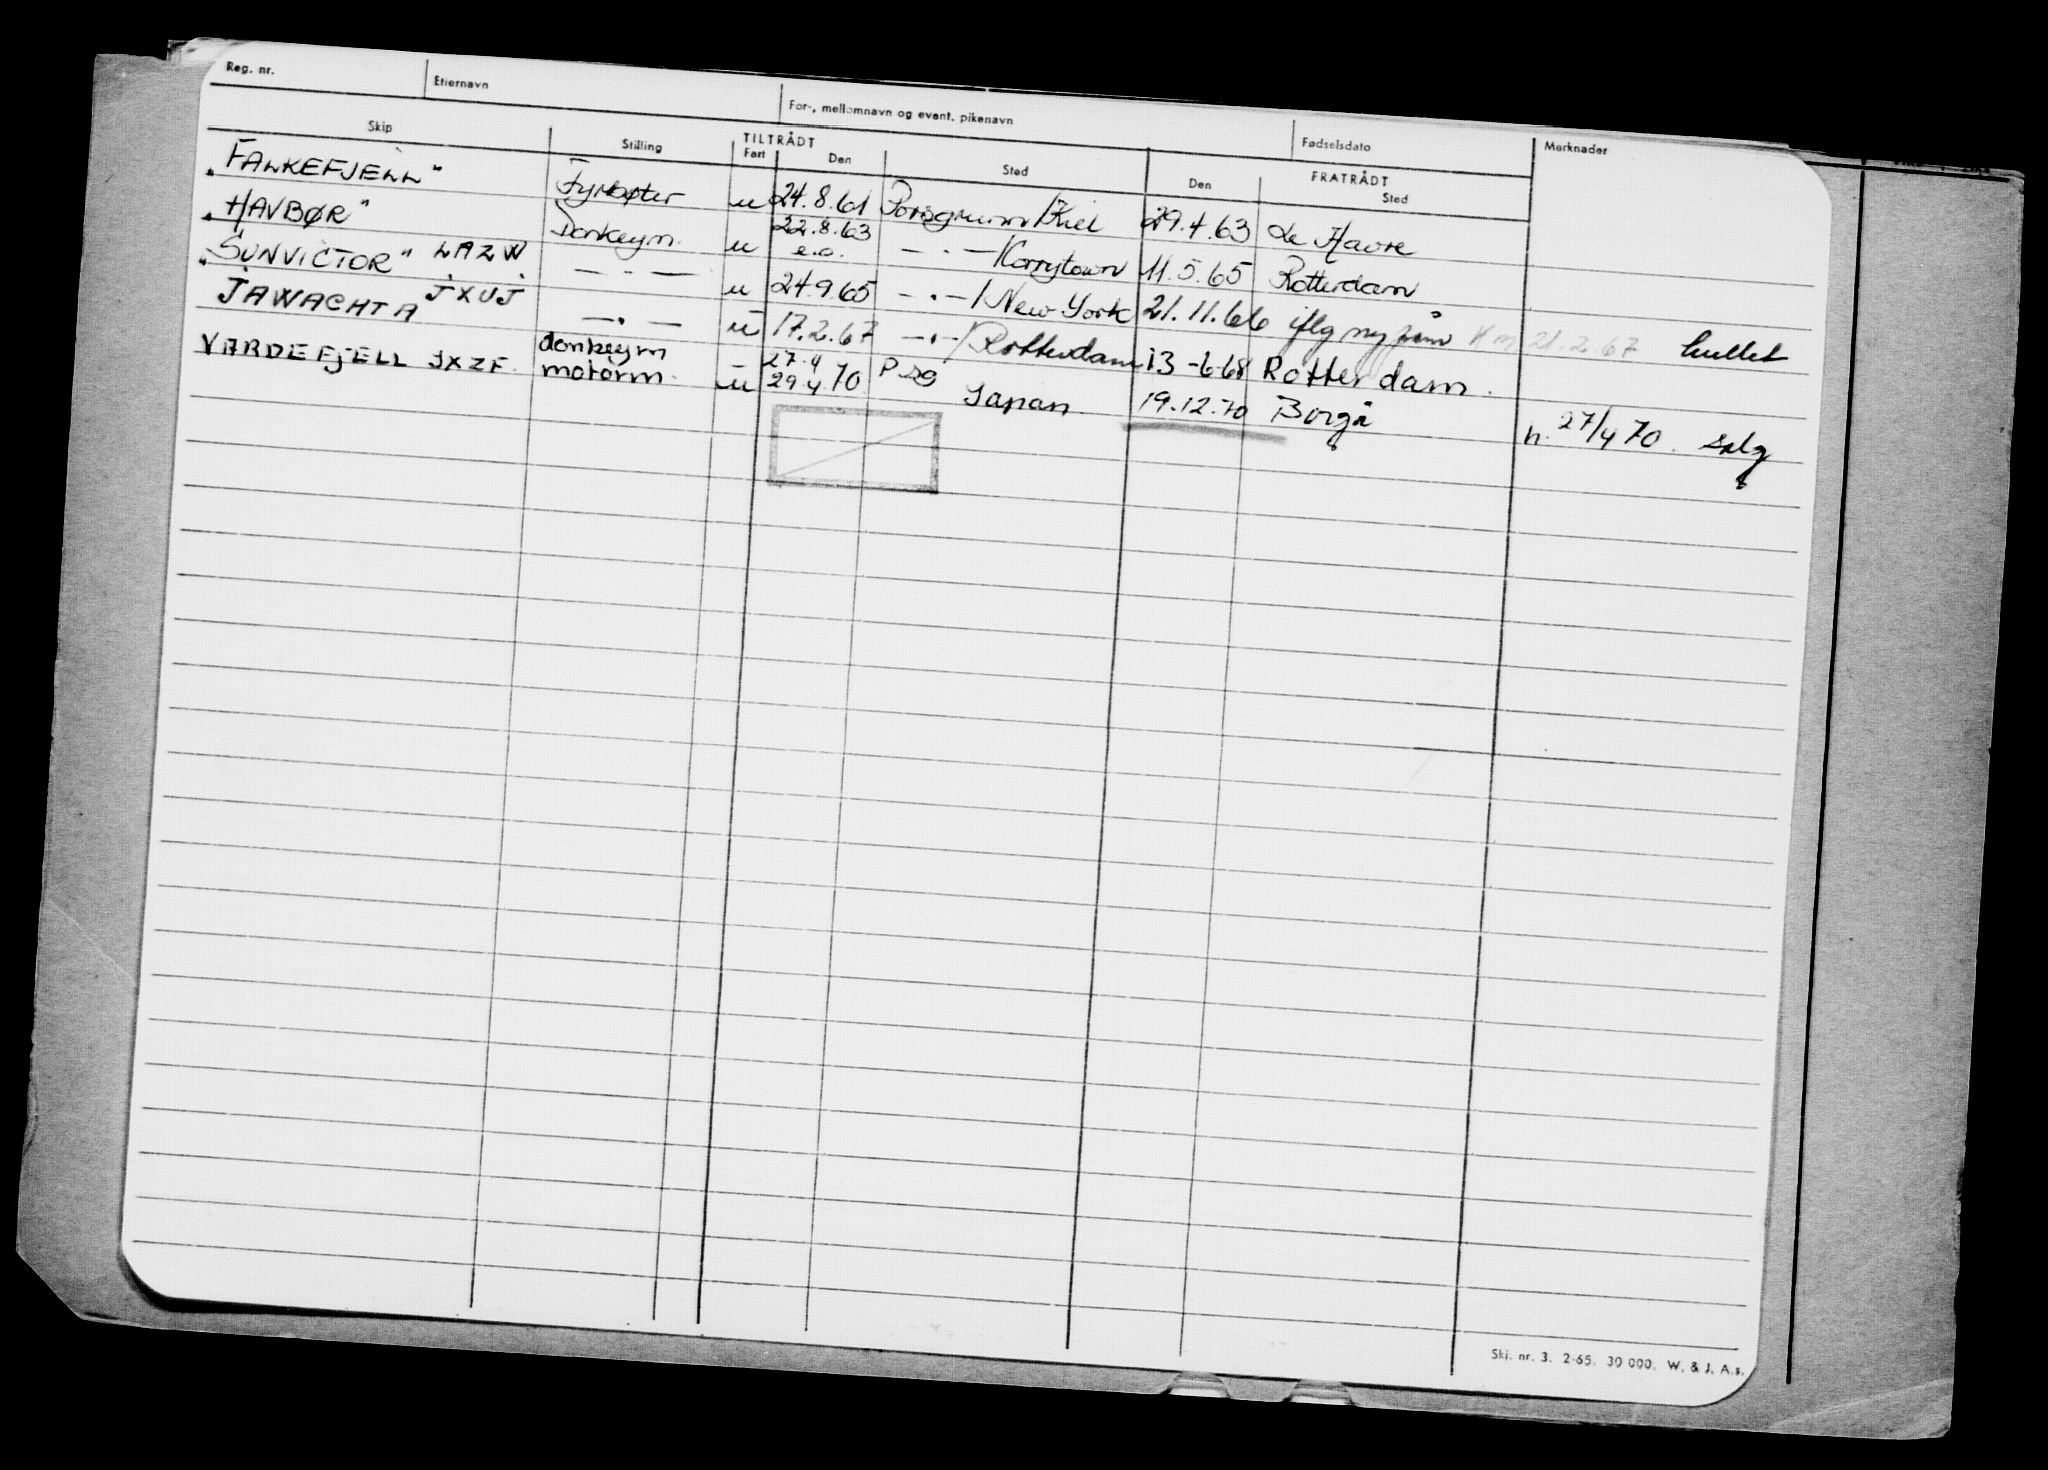 Reg. nr. Etternavn For-, mellomnavn og event. pikenavn Fødselsdato Merknader
Skip Stilling TILTRÅDT FRATRÅDT
Fart Den Sted Den Sted
"FALKEFJELL" Fyrbøter u 24.8.61 Porsgrunn/Kiel 29.4.63 Le Havre
"HAVBØR" Donkeym. u 22.8.63 e.o. — · — / 11.5.65 Rotterdam
"SUNVICTOR" LAZW — · — u 24.9.65 — · — / New York 21.11.66 iflg ny 21.2.67 hullet
JAWACHTA JXUJ — · — u 17.2.67 — · — / Rotterdam 13-6-68 Rotterdam.
VARDEFJELL JXZF. donkeym motorm. u 27.4 29.4.70 P Japan 19.12.70 Borgå h. 27/4 70. salg
Skj. nr. 3. 2-65. 30 000. W. & J. A.s.